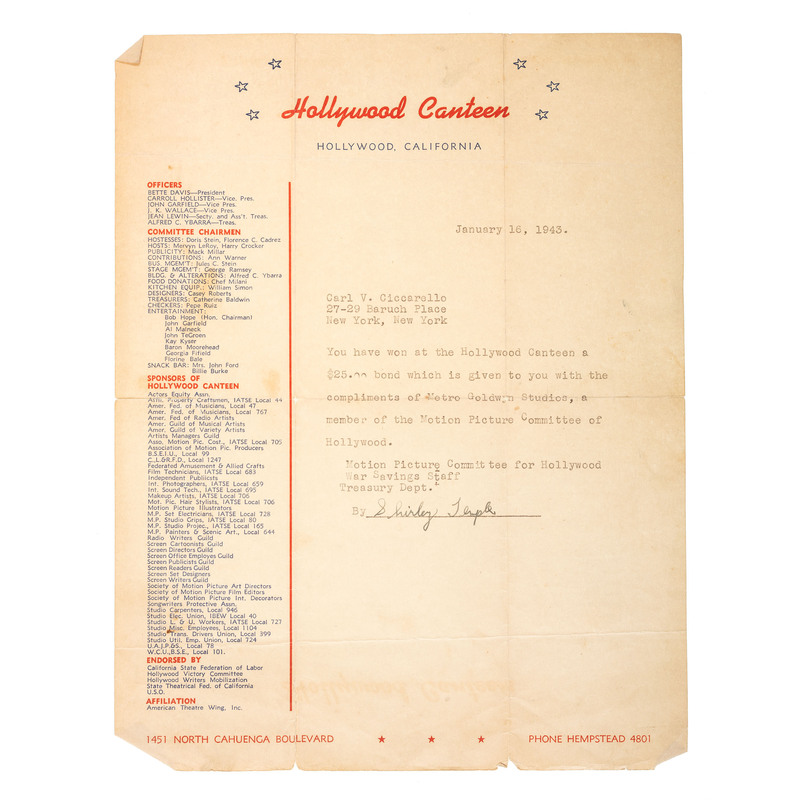 Hollywood Canteen
HOLLYWOOD, CALIFORNIA
OFFICERS
BETTE DAVIS—President
CARROLL HOLLISTER—Vice. Pres.
JOHN GARFIELD—Vice Pres.
J. K. WALLACE—Vice Pres.
JEAN LEWIN—Secty. and Ass't. Treas.
ALFRED C. YBARRA—Treas.
COMMITTEE CHAIRMEN
HOSTESSES: Doris Stein, Florence C. Cadrez
HOSTS: Mervyn LeRoy, Harry Crocker
PUBLICITY: Mack Millar
CONTRIBUTIONS: Ann Warner
BUS. MGEM'T: Jules C. Stein
STAGE MGEM'T: George Ramsey
BLDG. & ALTERATIONS: Alfred C. Ybarra
FOOD DONATIONS: Chef Milani
KITCHEN EQUIP.: William Simon
DESIGNERS: Casey Roberts
TREASURERS: Catherine Baldwin
CHECKERS: Pepe Ruiz
ENTERTAINMENT:
Bob Hope (Hon. Chairman)
John Garfield
Al Melneck
John TeGroen
Kay Kyser
Baron Moorehead
Georgia Fifield
Florine Bale
SNACK BAR: Mrs. John Ford
Billie Burke
SPONSORS OF
HOLLYWOOD CANTEEN
Actors Equity Assn.
Affil. Property Craftsmen, IATSE Local 44
Amer. Fed. of Musicians, Local 47
Amer. Fed. of Musicians, Local 767
Amer. Fed of Radio Artists
Amer. Guild of Musical Artists
Amer. Guild of Variety Artists
Artists Managers Guild
Asso. Motion Pic. Cost., IATSE Local 705
Association of Motion Pic. Producers
B.S.E.I.U., Local 99
C.,L.&R.F.D., Local 1247
Federated Amusement & Allied Crafts
Film Technicians, IATSE Local 683
Independent Publicists
Int. Photographers, IATSE Local 659
Int. Sound Tech., IATSE Local 695
Makeup Artists, IATSE Local 706
Mot. Pic. Hair Stylists, IATSE Local 706
Motion Picture Illustrators
M.P. Set Electricians, IATSE Local 728
M.P. Studio Grips, IATSE Local 80
M.P. Studio Projec., IATSE Local 165
M.P. Painters & Scenic Art., Local 644
Radio Writers Guild
Screen Cartoonists Guild
Screen Directors Guild
Screen Office Employes Guild
Screen Publicists Guild
Screen Readers Guild
Screen Set Designers
Screen Writers Guild
Society of Motion Picture Art Directors
Society of Motion Picture Film Editors
Society of Motion Picture Int. Decorators
Songwriters Protective Assn.
Studio Carpenters, Local 946
Studio Elec. Union, IBEW Local 40
Studio L. & U. Workers, IATSE Local 727
Studio Misc. Employees, Local 1104
Studio Trans. Drivers Union, Local 399
Studio Util. Emp. Union, Local 724
U.A.J.P.&S., Local 78
W.C.U.,B.S.E., Local 101.
ENDORSED BY
California State Federation of Labor
Hollywood Victory Committee
Hollywood Writers Mobilization
State Theatrical Fed. of California
U.S.O.
AFFILIATION
American Theatre Wing, Inc.
January 16, 1943.
Carl V. Ciccarello
27-29 Baruch Place
New York, New York
You have won at the Hollywood Canteen a
$25.00 bond which is given to you with the
compliments of Metro Goldwyn Studios, a
member of the Motion Picture Committee of
Hollywood.
Motion Picture Committee for Hollywood
War Savings Staff
Treasury Dept.
By Shirley Temple
1451 NORTH CAHUENGA BOULEVARD ★ ★ ★ PHONE HEMPSTEAD 4801